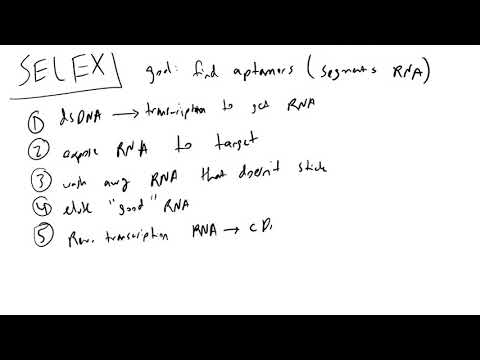 SELEX goal: find aptamers (segments RNA)
① dsDNA → transcription to get RNA
② expose RNA to target
③ wash away RNA that doesn't stick
④ elute "good" RNA
⑤ Rev. transcription RNA → cD